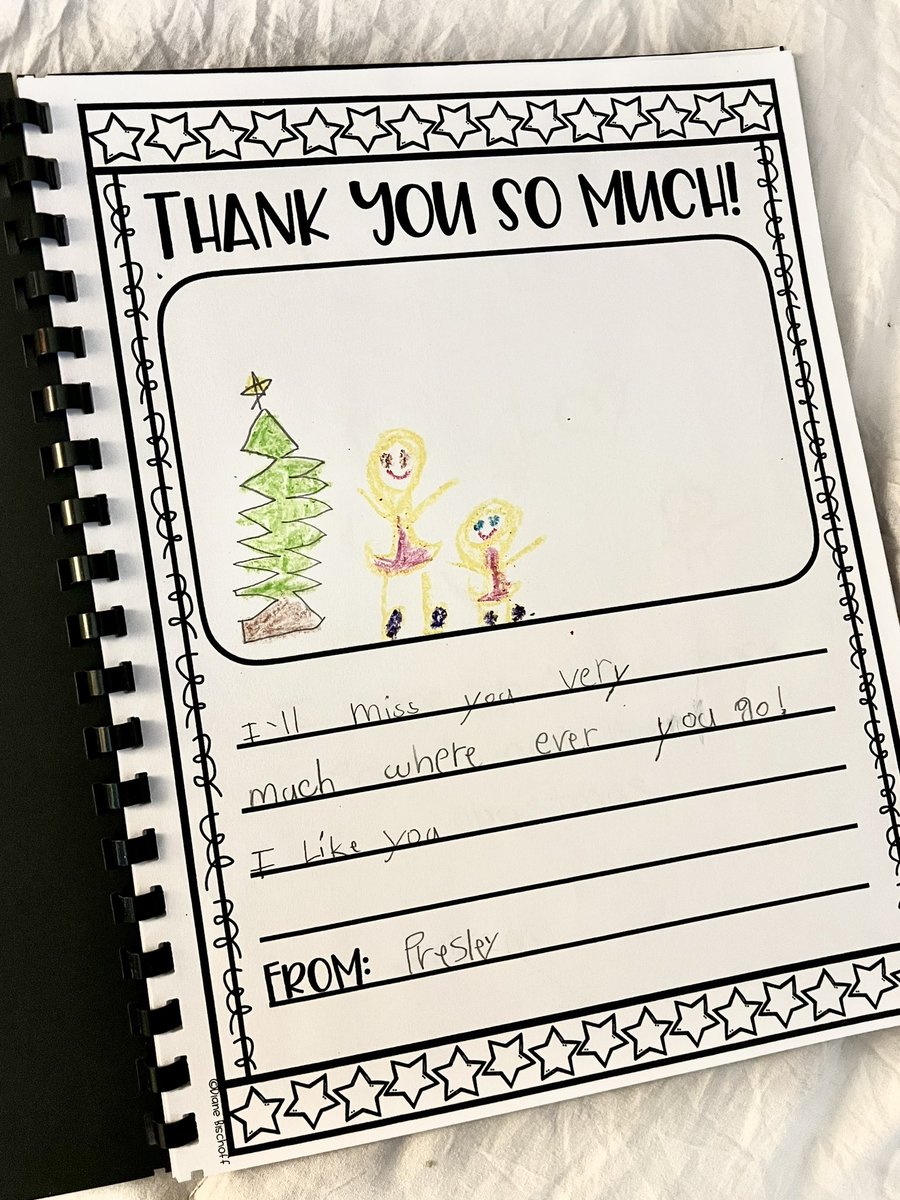 THANK YOU SO MUCH!
I'll miss you very
much where ever you go!
I Like you
FROM: Presley
©Diane Bischoff